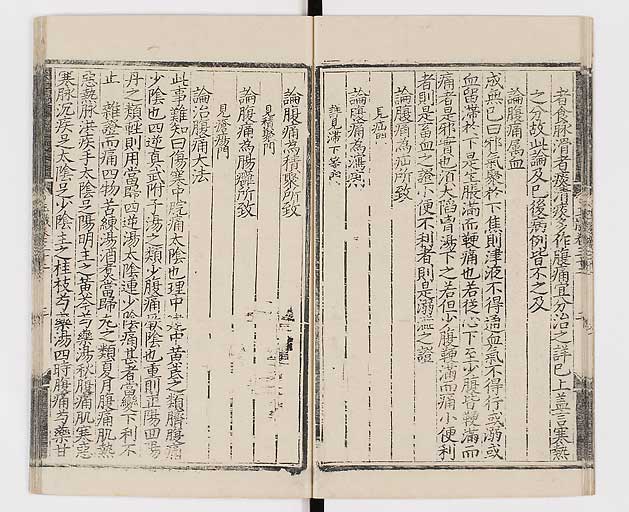 者食脉滑者痰滑痰多作腹痛宜分治之詳已上蓋言寒熱
之分故此論及已後病例皆不之及
論腹痛屬血
成無已曰邪氣聚於下焦則津液不得通血氣不得行或溺或
血留滯於下是生脹滿而鞕痛也若從心下至少腹皆鞕滿而
痛者是邪實也須大陷胷湯下之若但少腹鞕滿而痛小便利
者則是畜血之證小便不利者則是溺澁之證
論腹痛為疝所致
見疝門
論腹痛為滯所
見滯下
論腹痛為積聚所致
見積聚門
論腹痛為腸癰所致
見瘡瘍門
論治腹痛大法
此事難知曰傷寒中脘痛太陰也理中黃芪之類臍腹痛
少陰也四逆真武附子湯之類少腹痛厥陰也重則正陽回陽
丹之類輕則用當歸四逆湯太陰連少陰痛甚者當變下利不
止 雜證而痛四物苦練湯酒煮當歸丸之類夏月腹痛肌熱
惡熱脉洪疾手太陰足陽明主之黃芩芍藥湯秋腹痛肌寒惡
寒脉沉疾足太陰足少陰主之桂枝芍藥湯四時腹痛芍藥甘